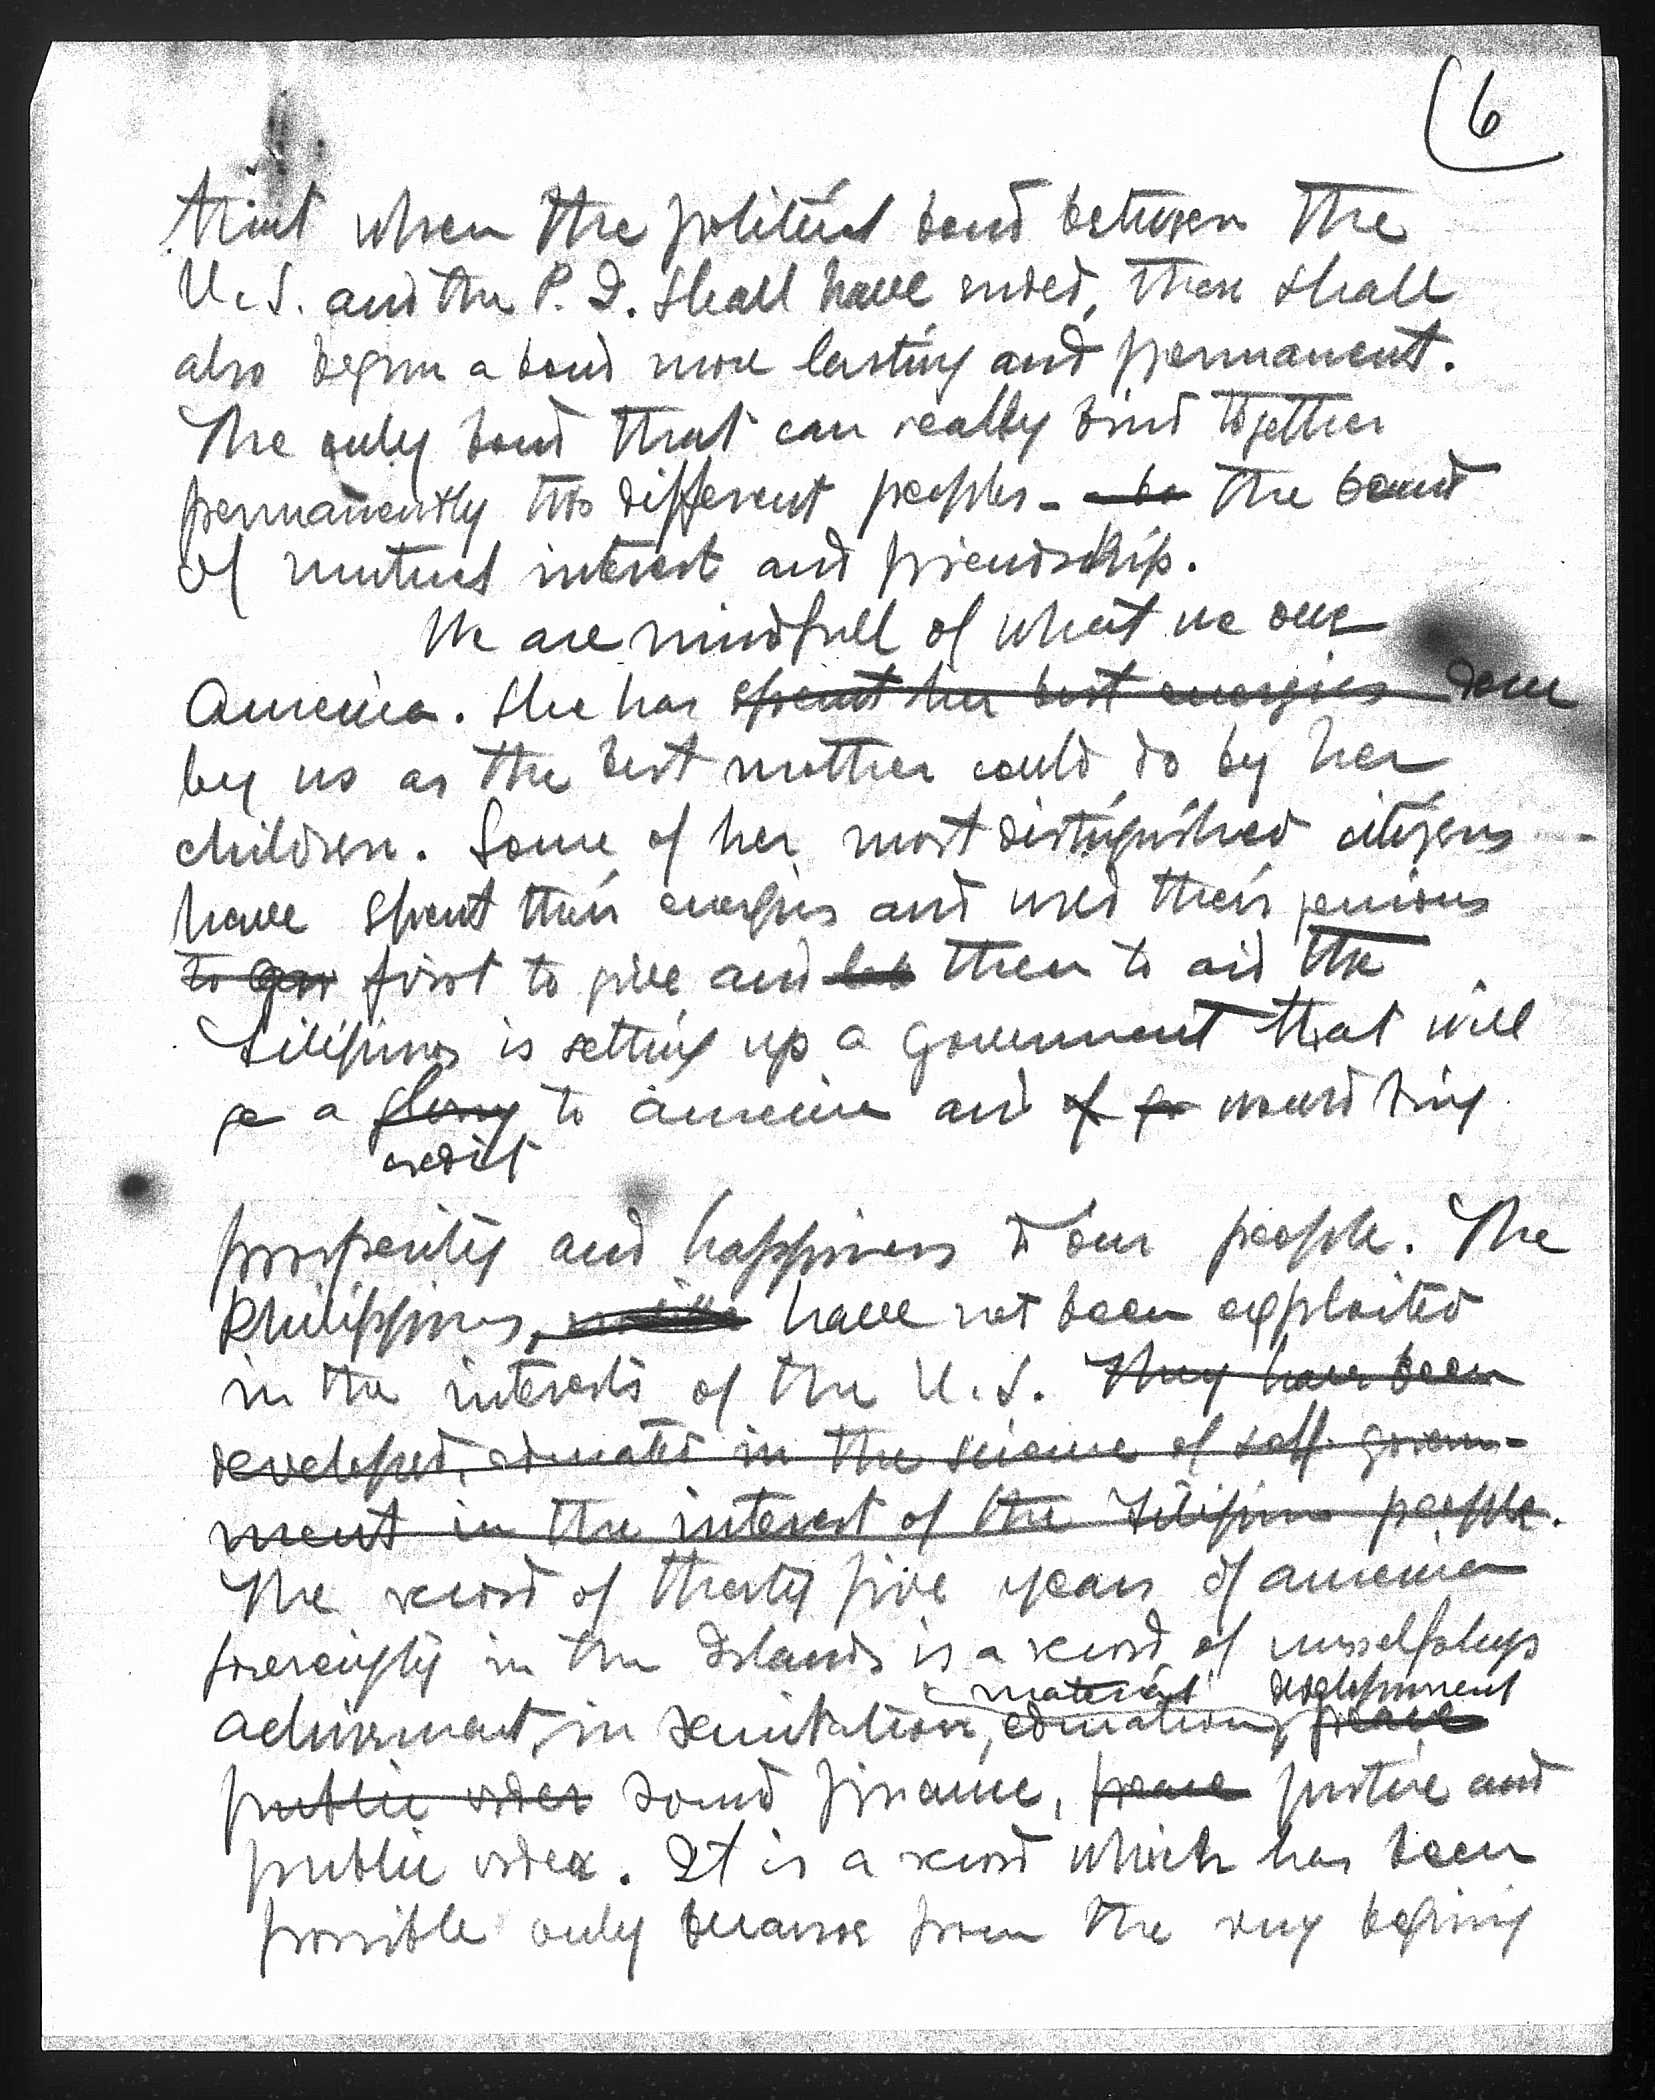 6
when the political bond between the
U.S. and the P. I. shall have ended, then shall
also begun a bond more lasting and permanent.
The only bond that can really bind together
permanently two different peoples - the bound
of mutual interest and friendship.
We are mindfull of what we owe
America. She has spent her best energies done
by us as the best mother could do by her
children. Some of her most distinguished citizens
have spent their energies and used their genious
first to give and then to aid the
Filipinos is setting up a government that will
ge a glory to America and would bring
credit
prosperity and happiness to our people. The
Philippines, have not been exploited
in the interests of the U.S. They have been
developed, educated in the science of self govern-
ment in the interest of the Filipino people.
The record of thirty five years of America
sovereignty in the Islands is a record of unselfish
material development
achivement, in sanitation, education, peace
public order sound finance, peace justice and
public order. It is a record which has been
possible only because from the very begining